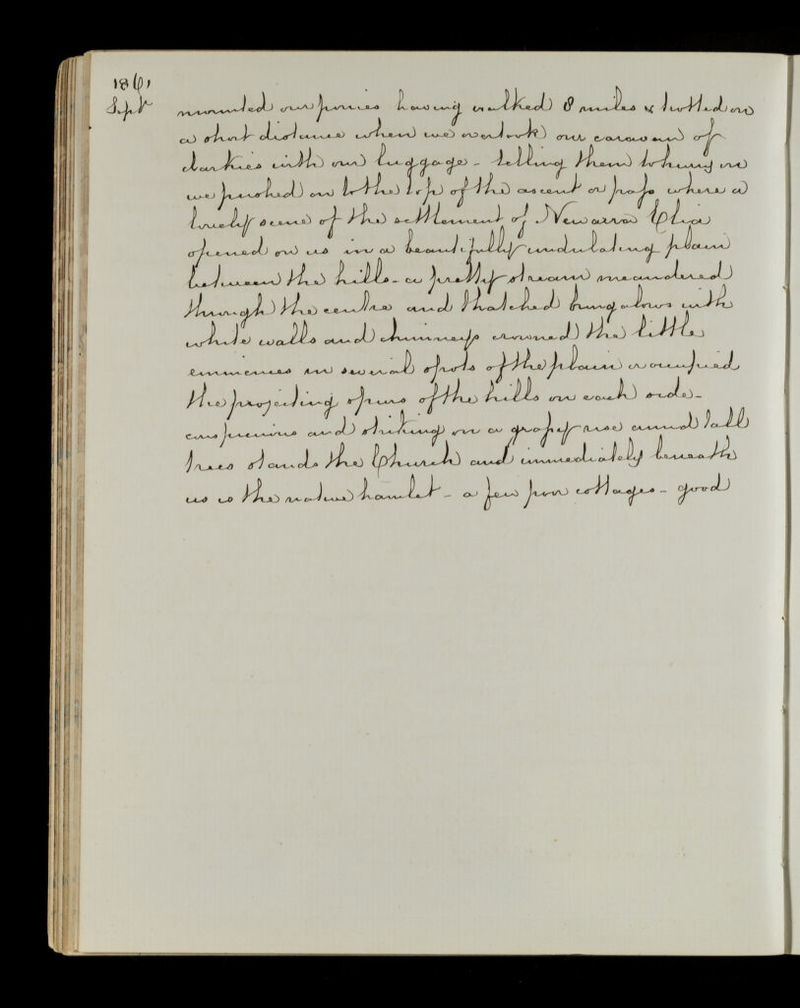 1861
Sept
mounted our ponies having walked 8 miles & trotted on
a short distance when we overtook our caravan of
darkies with our luggage - telling them to hurry on
we pushed on to the top of the ascent or pass where a
lovely scene of the settlement of Newarra Elia
opened on us in a beautifully undulating plain
between the hills - a pretty stream meandered
through the centre and thatched bungalows with
white walls and chimneys crowned the little
eminences in several spots of the plain or occupied
the projecting spurs of the hills on each side -
conspicuous and striking on a grassy rise amid tall
trees stands the Church and immediately beneath
us is the native hamlet - a few poor cottages - good